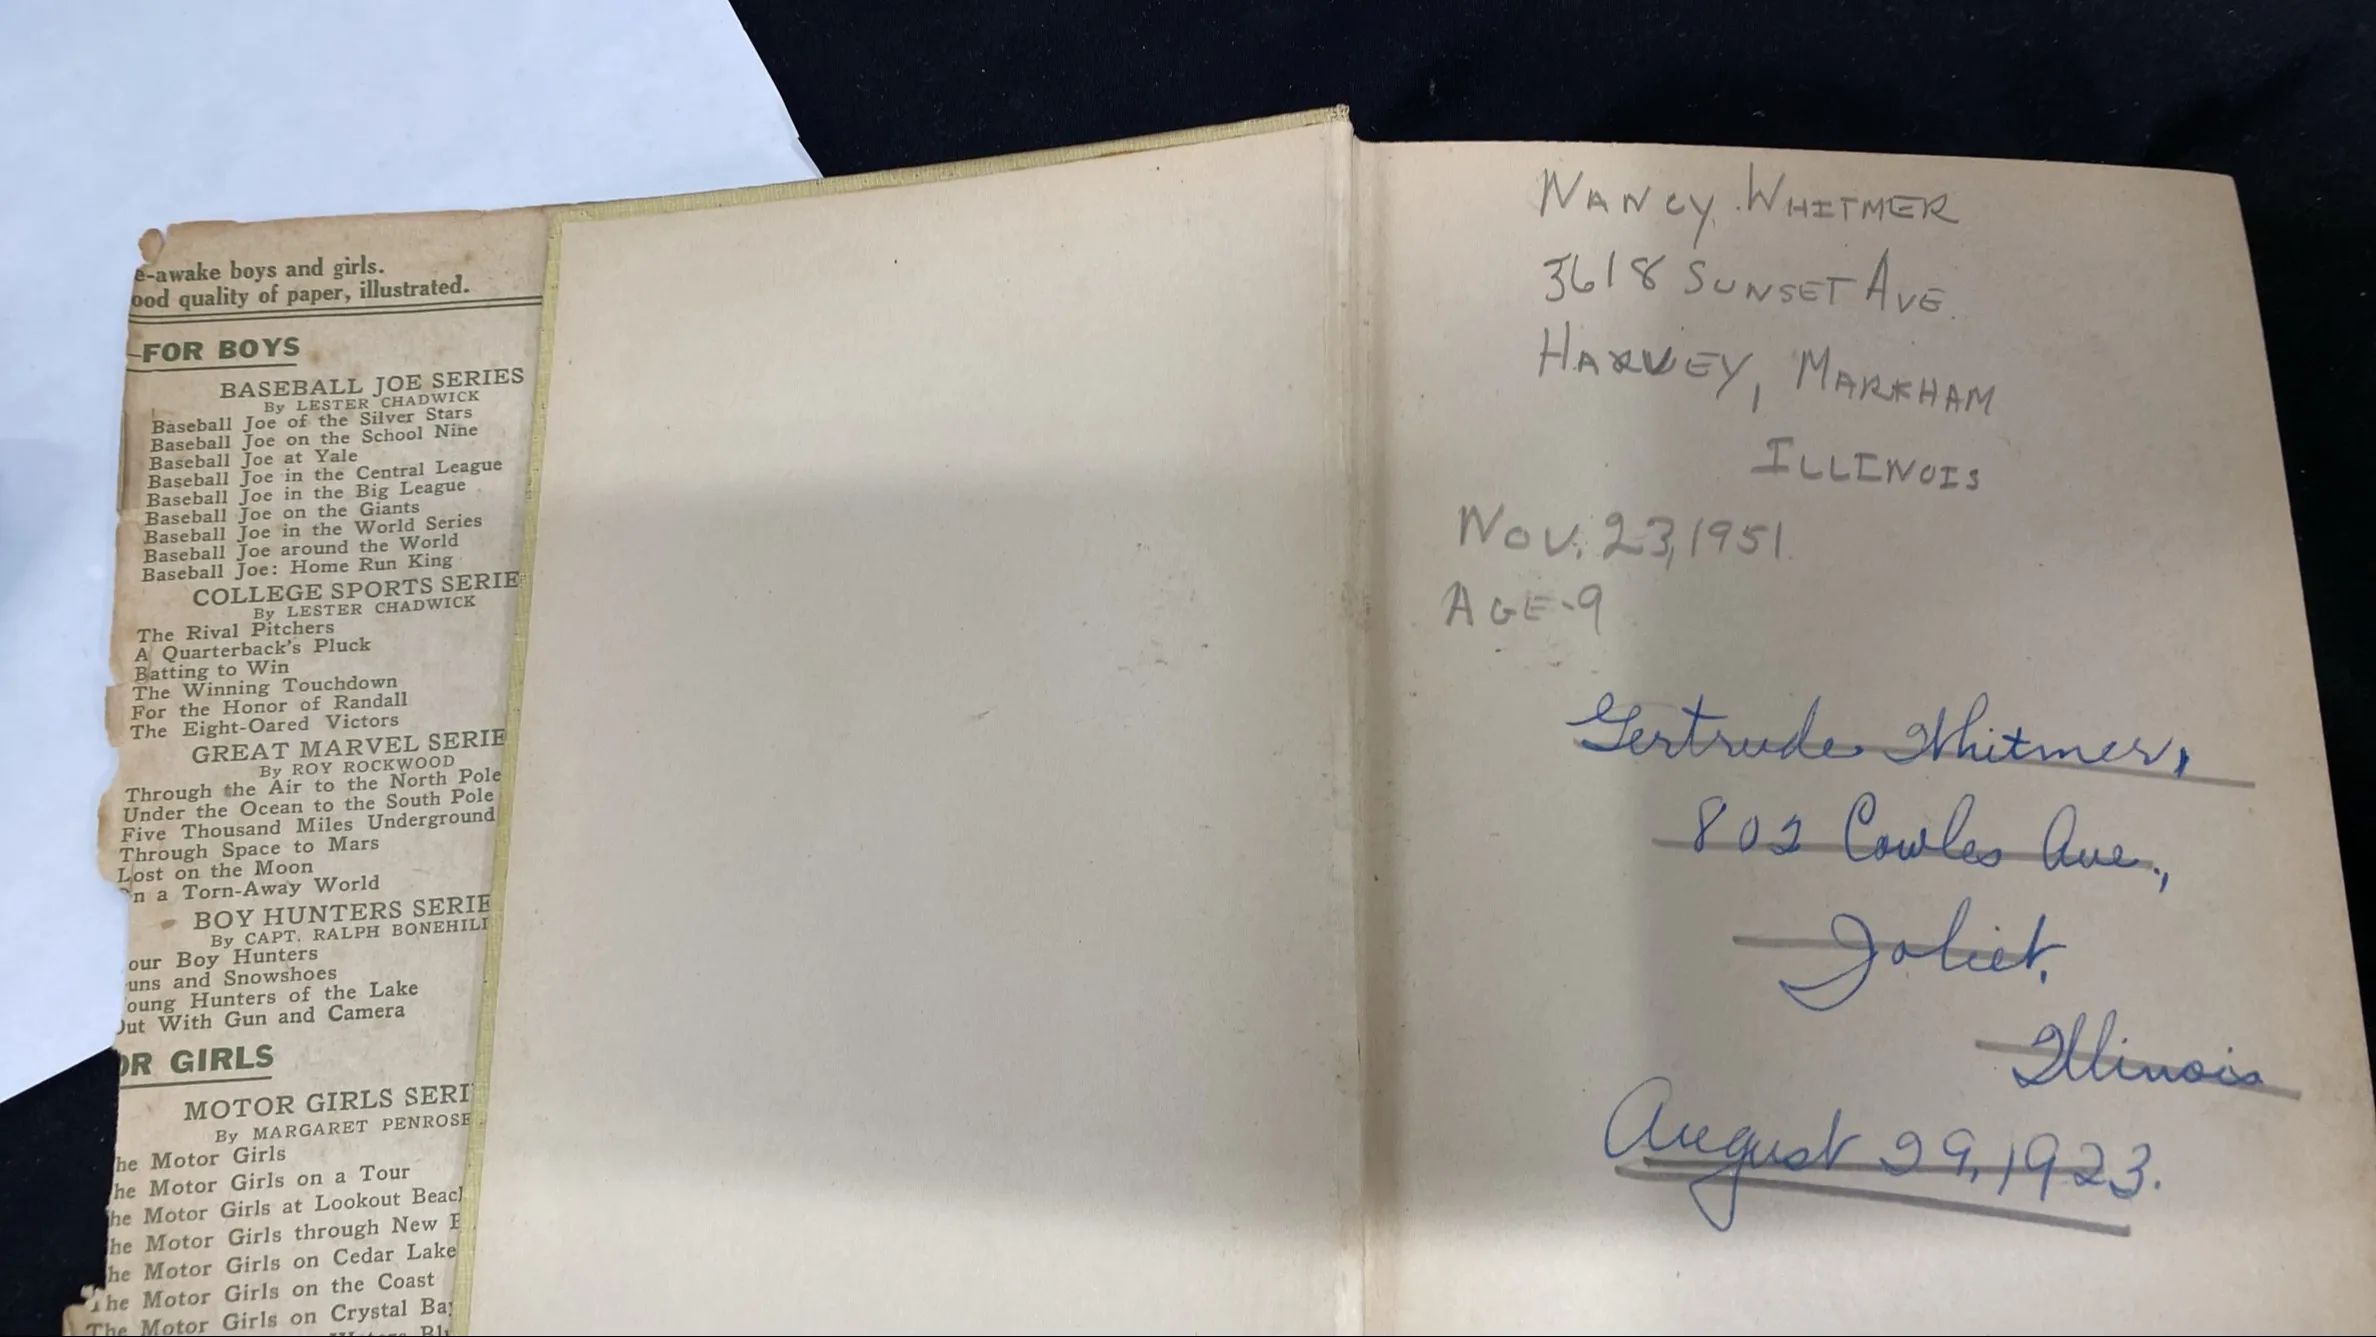 e-awake boys and girls.
ood quality of paper, illustrated.
—FOR BOYS
BASEBALL JOE SERIES
By LESTER CHADWICK
Baseball Joe of the Silver Stars
Baseball Joe on the School Nine
Baseball Joe at Yale
Baseball Joe in the Central League
Baseball Joe in the Big League
Baseball Joe on the Giants
Baseball Joe in the World Series
Baseball Joe around the World
Baseball Joe: Home Run King
COLLEGE SPORTS SERIE
By LESTER CHADWICK
The Rival Pitchers
A Quarterback's Pluck
Batting to Win
The Winning Touchdown
For the Honor of Randall
The Eight-Oared Victors
GREAT MARVEL SERIE
By ROY ROCKWOOD
Through the Air to the North Pole
Under the Ocean to the South Pole
Five Thousand Miles Underground
Through Space to Mars
Lost on the Moon
On a Torn-Away World
BOY HUNTERS SERIE
By CAPT. RALPH BONEHILL
our Boy Hunters
uns and Snowshoes
oung Hunters of the Lake
Out With Gun and Camera
OR GIRLS
MOTOR GIRLS SERI
By MARGARET PENROSE
he Motor Girls
he Motor Girls on a Tour
he Motor Girls at Lookout Beach
he Motor Girls through New E
he Motor Girls on Cedar Lake
he Motor Girls on the Coast
The Motor Girls on Crystal Bay
The Motor Girls on
NANCY WHITMER
3618 SUNSET AVE.
HARVEY, MARKHAM
ILLINOIS
NOV. 23, 1951.
AGE-9
Gertrude Whitmer,
802 Cowles Ave.,
Joliet,
Illinois
August 29, 1923.